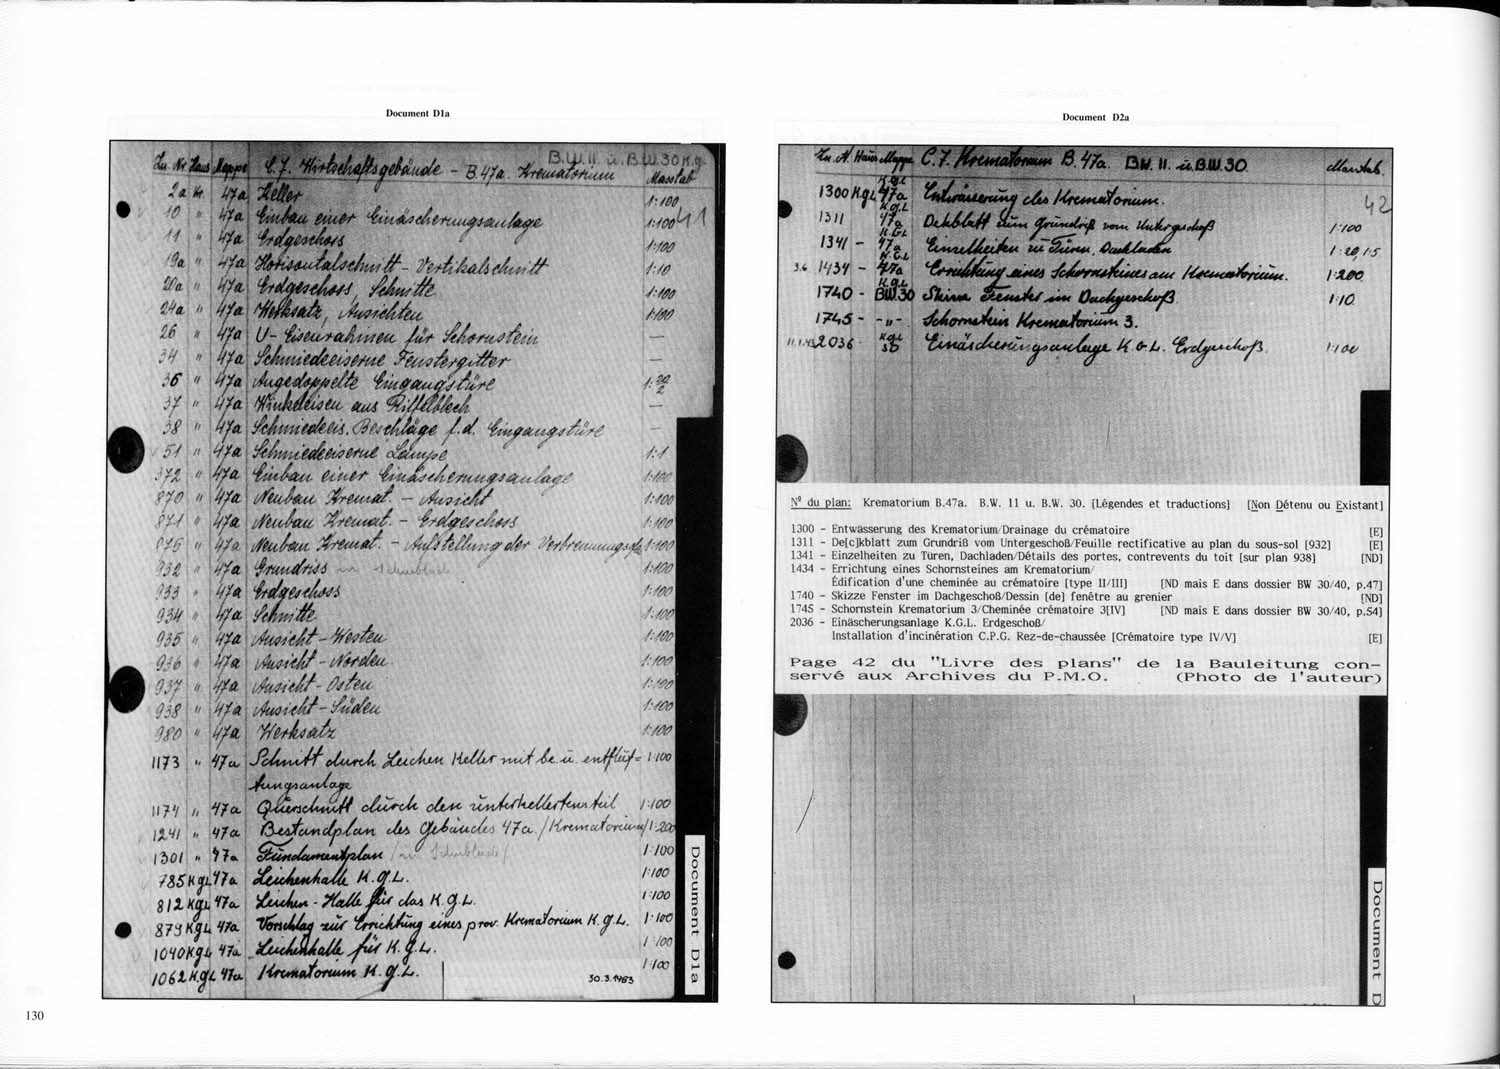 Document D1a
Zn. Nr Haus Mappe C.7. Wirtschaftsgebäude - B.47a. Krematorium B.W. 11. u. B.W. 30 K.g. Masstab
2a Kr 47a Keller 1:100
10 " 47a Einbau einer Einäscherungsanlage 1:100 41
11 " 47a Erdgeschoss 1:100
19a " 47a Horisontalschnitt - Vertikalschnitt 1:10
20a " 47a Erdgeschoss, Schnitte 1:100
24a " 47a Werksatz, Ansichten 1:100
26 " 47a U- Eisenrahmen für Schornstein —
34 " 47a Schmiedeeiserne Fenstergitter —
36 " 47a Aufgedoppelte Eingangstüre
37 " 47a Winkeleisen aus Riffelblech —
38 " 47a Schmiedeeis. Beschläge f. d. Eingangstüre —
51 " 47a Schmiedeeiserne Lampe 1:1
372 " 47a Einbau einer Einäscherungsanlage 1:100
870 " 47a Neubau Kremat. - Ansicht 1:100
871 " 47a Neubau Kremat. - Erdgeschoss 1:100
875 " 47a Neubau Kremat. - Aufstellung der 1:100
932 " 47a Grundriss 1:100
933 " 47a Erdgeschoss 1:100
934 " 47a Schnitte 1:100
935 " 47a Ansicht - Westen 1:100
936 " 47a Ansicht - Norden 1:100
937 " 47a Ansicht - Osten 1:100
938 " 47a Ansicht - Süden 1:100
980 " 47a Werksatz 1:100
1173 " 47a Schnitt durch Leichen Keller mit be. u. entlüf= 1:100
tungsanlage
1174 " 47a Querschnitt durch den unterkellerten teil 1:100
1241 " 47a Bestandplan des Gebäudes 47a. /Krematorium/ 1:200
1301 " 47a Fundamentplan 1:100
785 KgL 47a Leichenhalle K.g.L. 1:100
812 KgL 47a Leichen - Halle für das K.g.L. 1:100
879 KgL 47a Vorschlag zur Errichtung eines prov. Krematorium K.g.L. 1:100
1040 K.g.L 47a Leichenhalle für K.g.L. 1:100
1062 K.gL 47a Krematorium K.g.L. 1:100
30.3.1983
Document D1a
130
Document D2a
Zn. N. Haus Mappe C.7. Krematorium B.47a. BW. 11. u. B.W. 30. Masstab.
1300 K.g.L K.g.L 47a Entwässerung des Krematorium. 42
1311 K.g.L 47a Dekblatt zum Grundriß vom Untergeschoß 1:100
1341 - K.G.L 47a Einzelheiten zu Türen, Dachladen 1:20, 1:5
3.6 1434 - K.G.L 47a Errichtung eines Schornsteines am Krematorium. 1:200
1740 - K.g.L BW.30 Skizze Fenster im Dachgeschoß 1:10
1745 - - " - Schornstein Krematorium 3.
11.1.43 2036 KgL 30 Einäscherungsanlage K.G.L. Erdgeschoß 1:100
N° du plan: Krematorium B.47a. B.W. 11 u. B.W. 30. [Légendes et traductions] [Non Détenu ou Existant]
1300 - Entwässerung des Krematorium/Drainage du crématoire [E]
1311 - De[c]kblatt zum Grundriß vom Untergeschoß/Feuille rectificative au plan du sous-sol [932] [E]
1341 - Einzelheiten zu Türen, Dachladen/Détails des portes, contrevents du toit [sur plan 938] [ND]
1434 - Errichtung eines Schornsteines am Krematorium/
Édification d'une cheminée au crématoire [type II/III] [ND mais E dans dossier BW 30/40, p.47]
1740 - Skizze Fenster im Dachgeschoß/Dessin [de] fenêtre au grenier [ND]
1745 - Schornstein Krematorium 3/Cheminée crématoire 3[IV] [ND mais E dans dossier BW 30/40, p.54]
2036 - Einäscherungsanlage K.G.L. Erdgeschoß/
Installation d'incinération C.P.G. Rez-de-chaussée [Crématoire type IV/V] [E]
Page 42 du "Livre des plans" de la Bauleitung con-
servé aux Archives du P.M.O. (Photo de l'auteur)
Document D